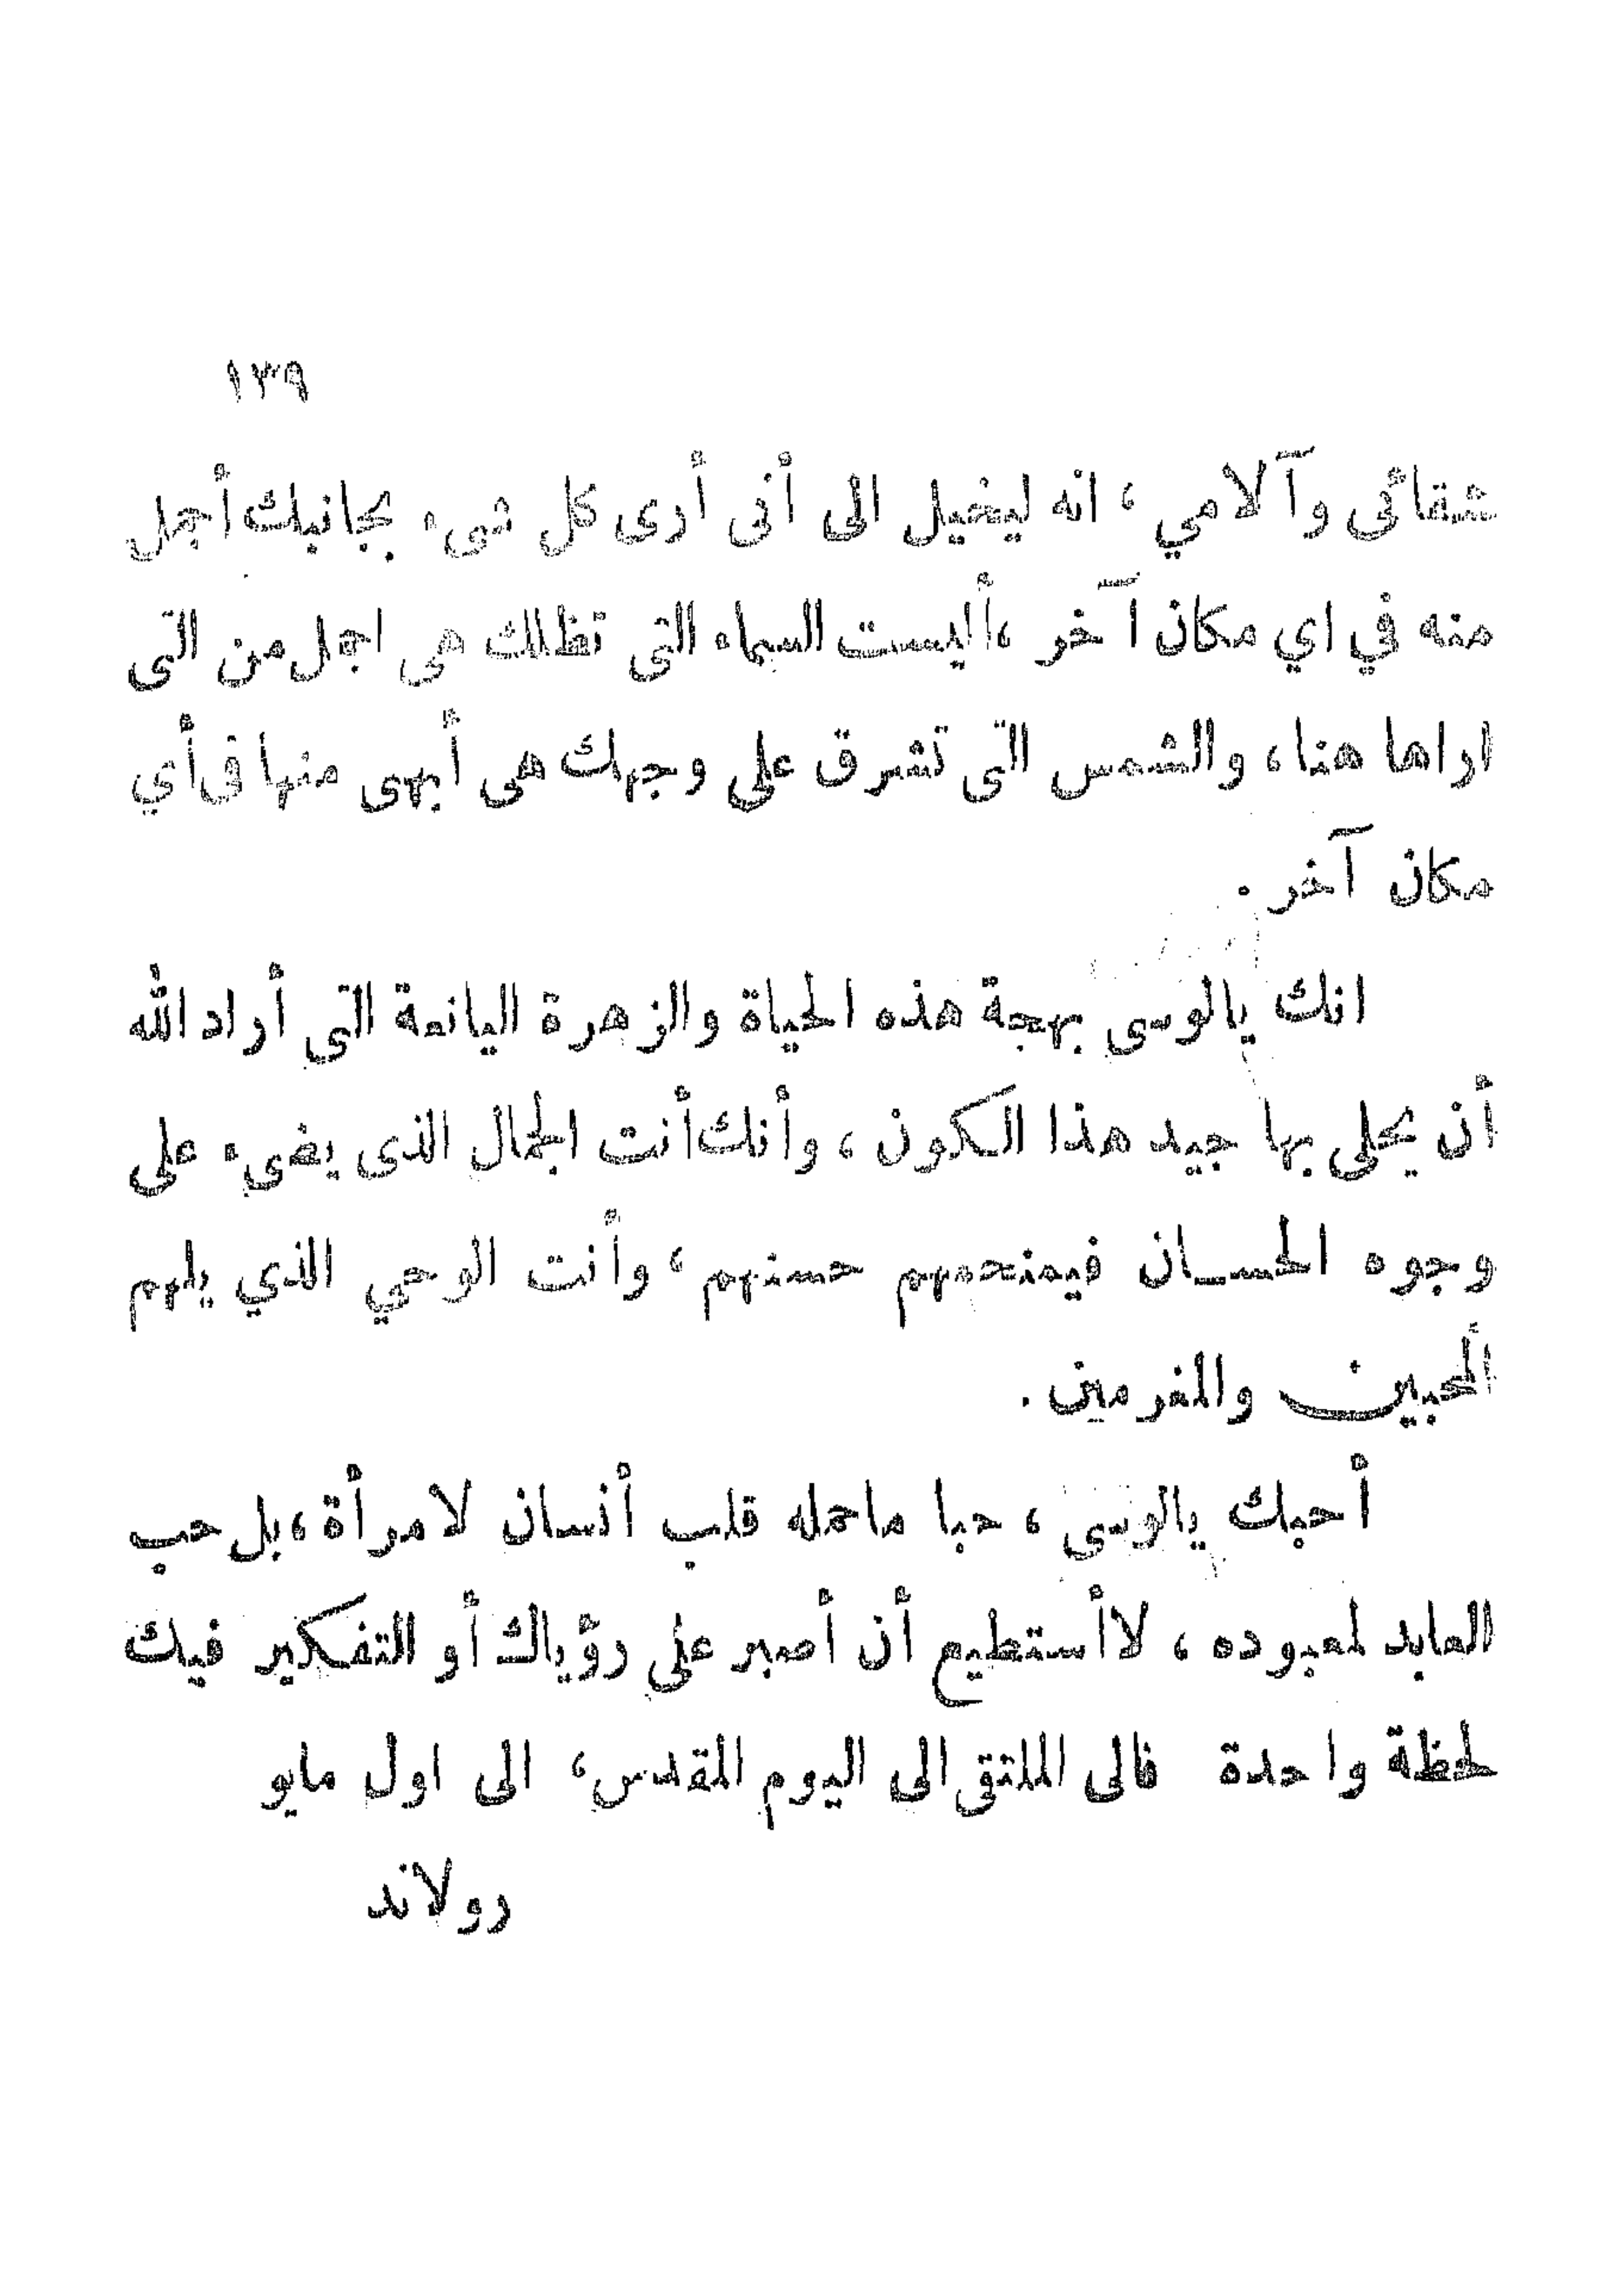 ١٣٩
شقائى وآلامي ، انه ليخيل الى أنى أرى كل شىء بجانبك أجمل
منه في اي مكان آخر ، أليست السماء التى تظلك هى اجمل من التى
اراها هنا ، والشمس التى تشرق على وجهك هى أبهى منها فى أي
مكان آخر .
انك يالوسى بهجة هذه الحياة والزهرة اليانعة التى أراد الله
أن يحلى بها جيد هذا الكون ، وأنك أنت الجمال الذى يضىء على
وجوه الحسان فيمنحهم حسنهم ، وأنت الوحي الذي يلهم
المحبين والمغرمين .
أحبك يالوسى ، حبا ماحمله قلب أنسان لامرأة ، بل حب
العابد لمعبوده ، لاأستطيع أن أصبر على رؤياك أو التفكير فيك
لحظة واحدة فالى الملتقى الى اليوم المقدس ، الى اول مايو
رولاند